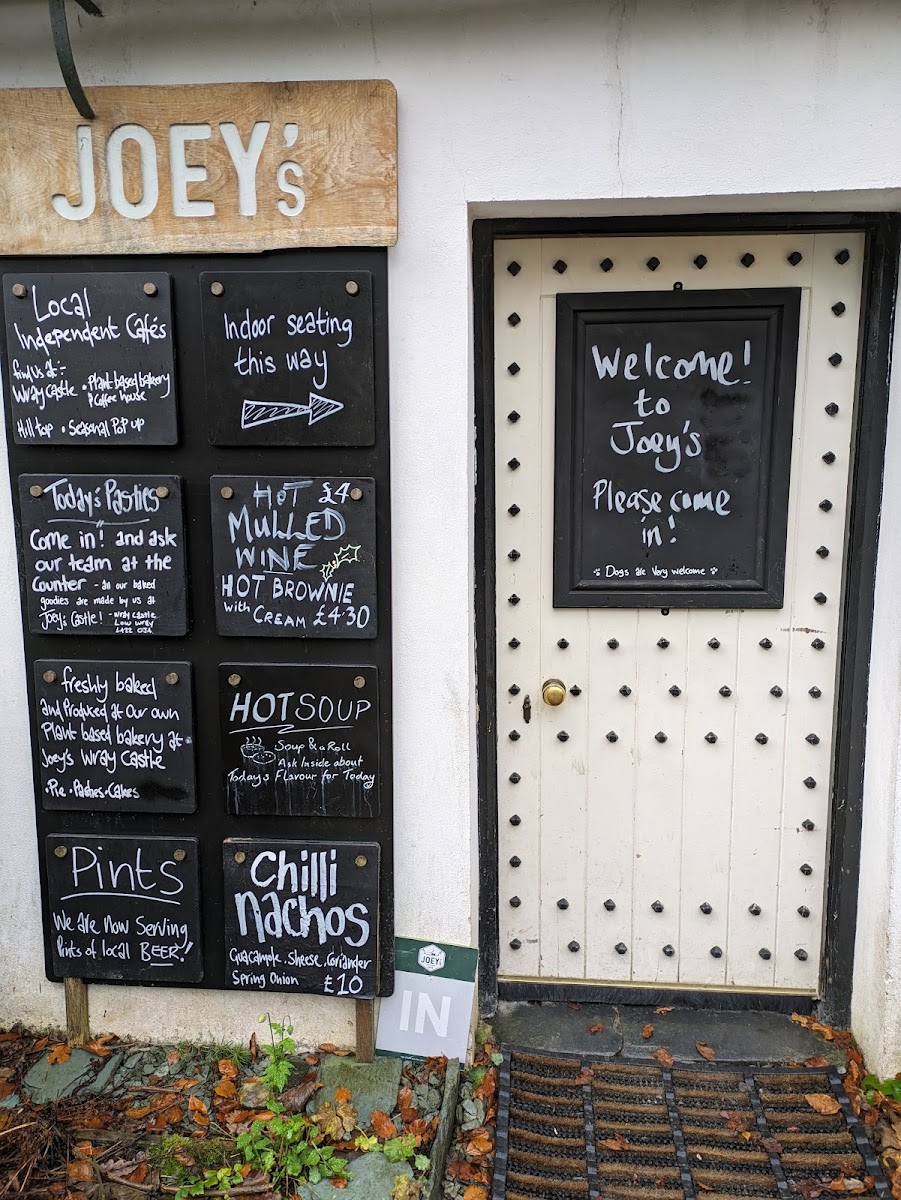 JOEY's
Local
Independent Cafés
find us at:-
Wray Castle • Plant based bakery
& Coffee house
Hill top • Seasonal Pop up
Indoor seating
this way
Today's Pasties
Come in! and ask
our team at the
Counter - all our baked
goodies are made by us at
Joey's Castle! - Wray Castle
Low Wray
HOT £4
MULLED
WINE
HOT BROWNIE
with CREAM £4.30
freshly baked
and Produced at Our own
Plant based bakery at
Joey's Wray Castle
• Pie • Pasties • Cakes
HOT SOUP
Soup & a Roll
Ask Inside about
Today's Flavour for Today
Pints
We are now Serving
Pints of local BEER!
Chilli
Nachos
Guacamole . Sheese . Coriander
Spring Onion £10
JOEY's
IN
Welcome!
to
Joey's
Please come
in!
Dogs are Very welcome